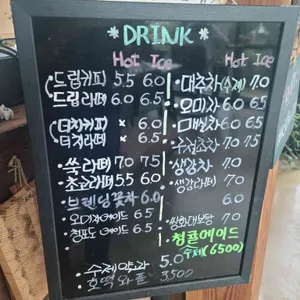 * DRINK *
Hot Ice
드립커피 5.5 6.0
드립라떼 6.0 6.5
더치커피 x 6.0
더치라떼 x 6.5
쑥라떼 7.0 7.5
초코라떼 5.5 6.0
브렌딩꽃차 6.0
오미자에이드 6.5
청포도에이드 6.5
수제약과 5.0
호떡와플 3500
Hot Ice
대추차(수제) 7.0
오미차 6.0 6.5
매실차 6.0 6.5
수정과차 7.0
생강차 7.0
생강라떼 7.0
쌍화대보탕 7.0
청귤에이드
수제(6500)